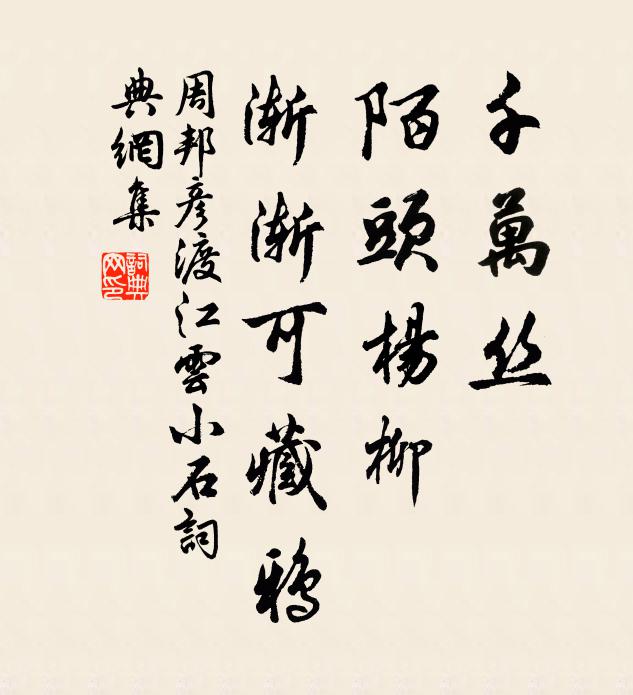 千萬丝
陌頭楊柳
漸漸可藏鴉
周邦彥渡江雲小石詞
典網集
詞典網印